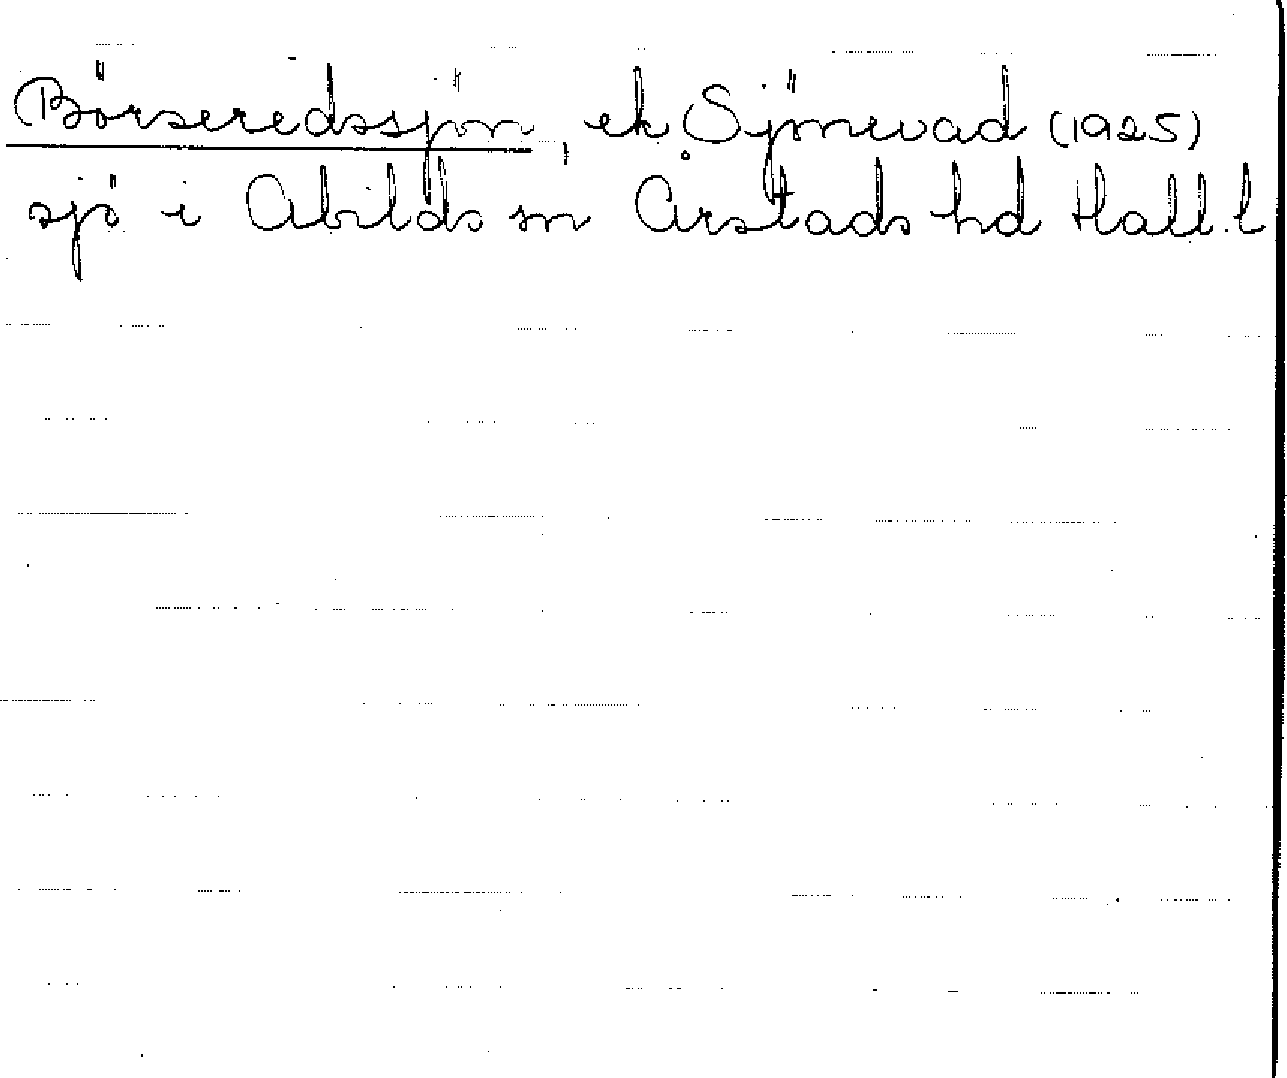 Börseredssjön, ek Sjönevad (1925)
sjö i Abilds sn Årstads hd Hall. l